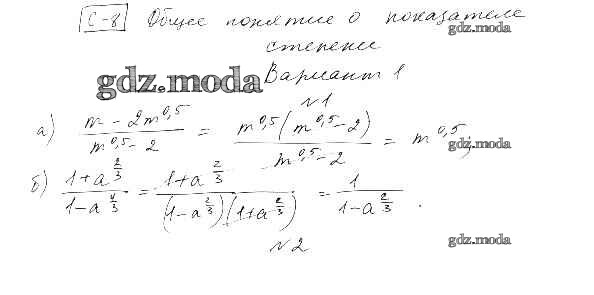 С-8 Общее понятие о показателе
gdz.moda
степени
gdz.moda Вариант 1
№1
а) \frac{m - 2m^{0,5}}{m^{0,5} - 2} = \frac{m^{0,5}(m^{0,5} - 2)}{m^{0,5} - 2} = m^{0,5};
gdz.moda
б) \frac{1+a^{\frac{2}{3}}}{1-a^{\frac{4}{3}}} = \frac{1+a^{\frac{2}{3}}}{(1-a^{\frac{2}{3}})(1+a^{\frac{2}{3}})} = \frac{1}{1-a^{\frac{2}{3}}}.
№2
gdz.moda